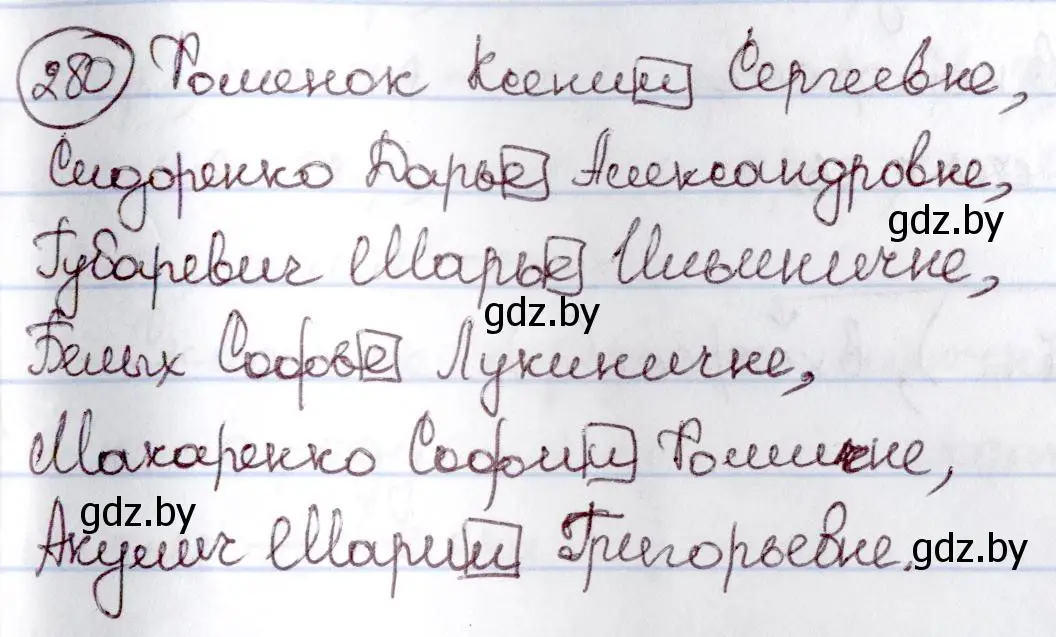 280 Фоменок Ксении Сергеевне,
Сидоренко Дарье Александровне,
gdz.by
Губаревич Марье Ильиничне,
gdz.by
Белых Софье Лукиничне,
Макаренко Софии Фоминичне,
gdz.by
Акулич Марии Григорьевне.
gdz.by